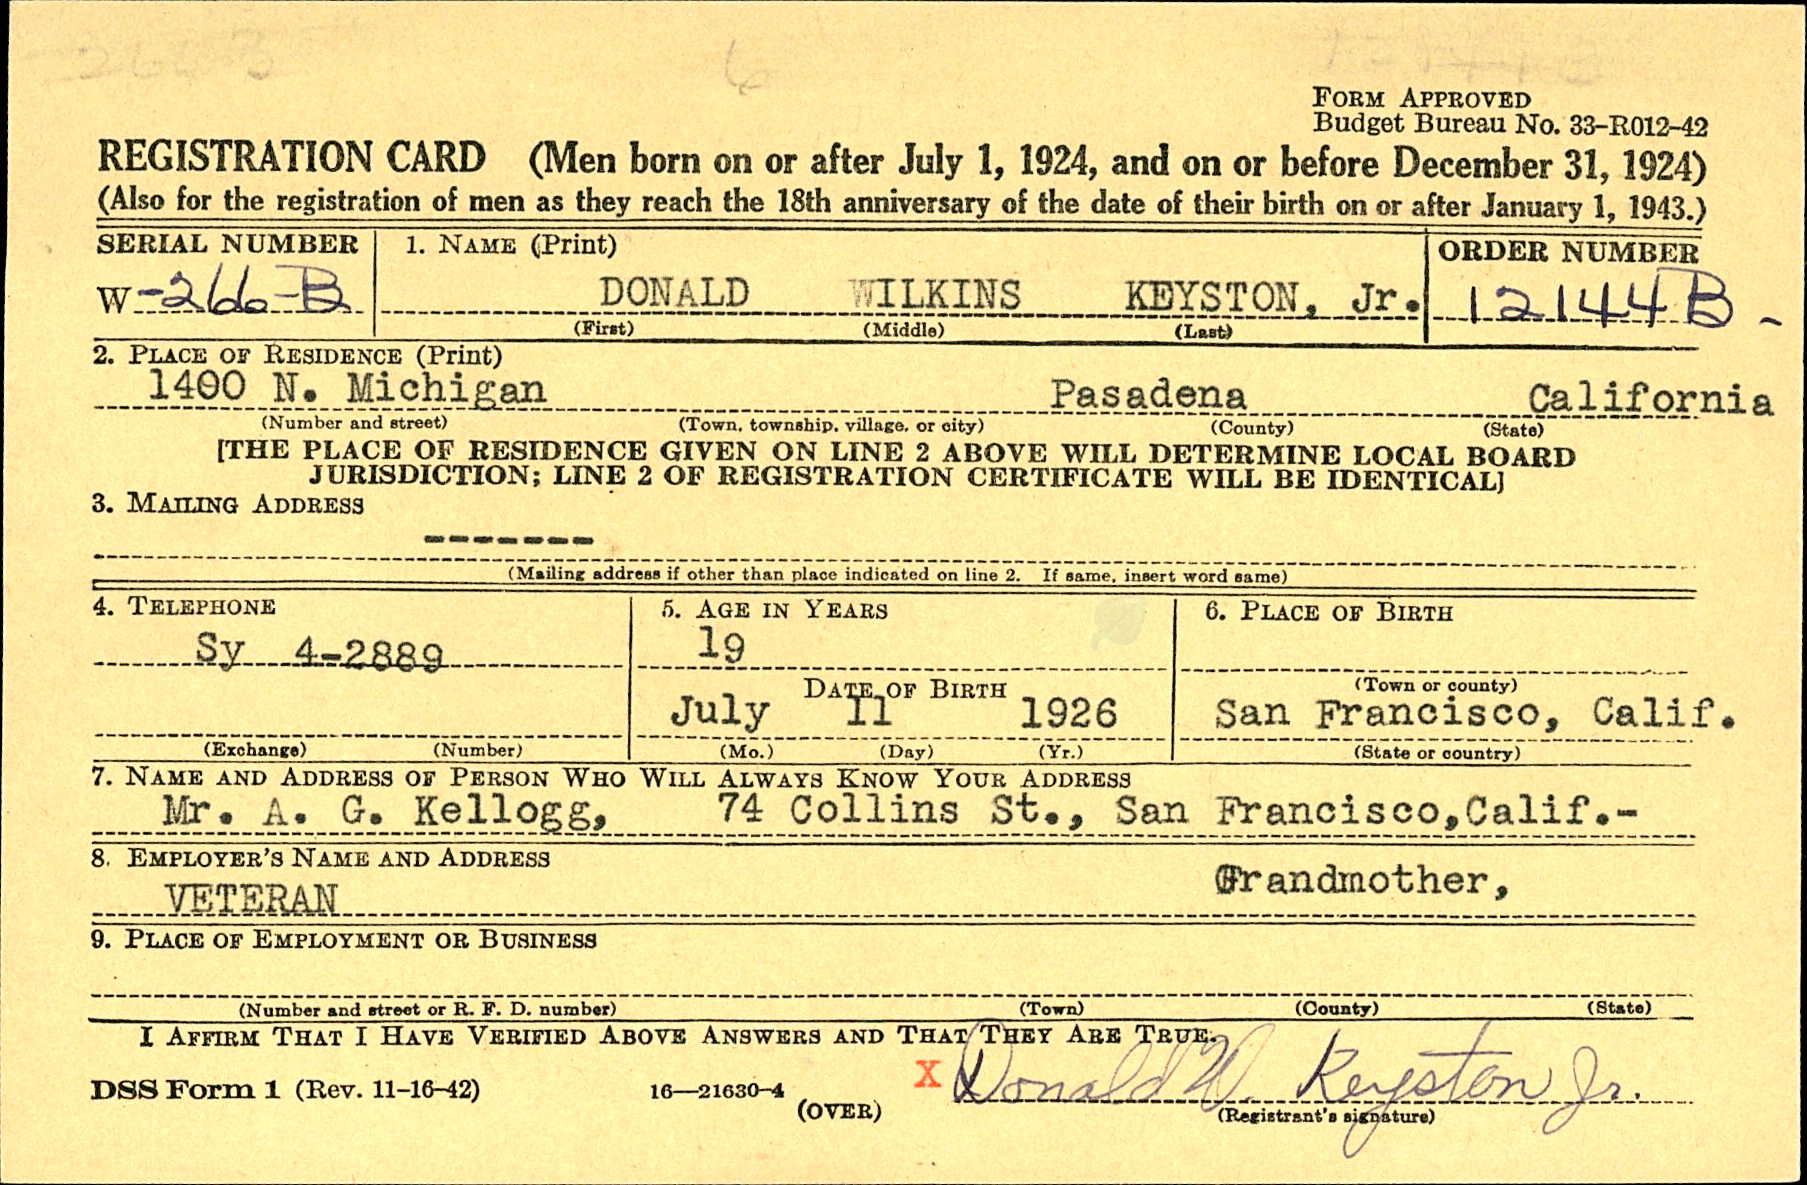 FORM APPROVED
Budget Bureau No. 33-R012-42
REGISTRATION CARD (Men born on or after July 1, 1924, and on or before December 31, 1924)
(Also for the registration of men as they reach the 18th anniversary of the date of their birth on or after January 1, 1943.)
SERIAL NUMBER 1. NAME (Print) ORDER NUMBER
W-266-B DONALD WILKINS KEYSTON, Jr. 12144B-
(First) (Middle) (Last)
2. PLACE OF RESIDENCE (Print)
1400 N. Michigan Pasadena California
(Number and street) (Town, township, village, or city) (County) (State)
[THE PLACE OF RESIDENCE GIVEN ON LINE 2 ABOVE WILL DETERMINE LOCAL BOARD
JURISDICTION; LINE 2 OF REGISTRATION CERTIFICATE WILL BE IDENTICAL]
3. MAILING ADDRESS
-------
(Mailing address if other than place indicated on line 2. If same, insert word same)
4. TELEPHONE 5. AGE IN YEARS 6. PLACE OF BIRTH
Sy 4-2889 19
DATE OF BIRTH (Town or county)
July 11 1926 San Francisco, Calif.
(Exchange) (Number) (Mo.) (Day) (Yr.) (State or country)
7. NAME AND ADDRESS OF PERSON WHO WILL ALWAYS KNOW YOUR ADDRESS
Mr. A. G. Kellogg, 74 Collins St., San Francisco,Calif.-
8. EMPLOYER'S NAME AND ADDRESS
VETERAN Grandmother,
9. PLACE OF EMPLOYMENT OR BUSINESS
(Number and street or R. F. D. number) (Town) (County) (State)
I AFFIRM THAT I HAVE VERIFIED ABOVE ANSWERS AND THAT THEY ARE TRUE.
DSS Form 1 (Rev. 11-16-42) 16—21630-4 (OVER) X Donald W. Keyston Jr.
(Registrant's signature)